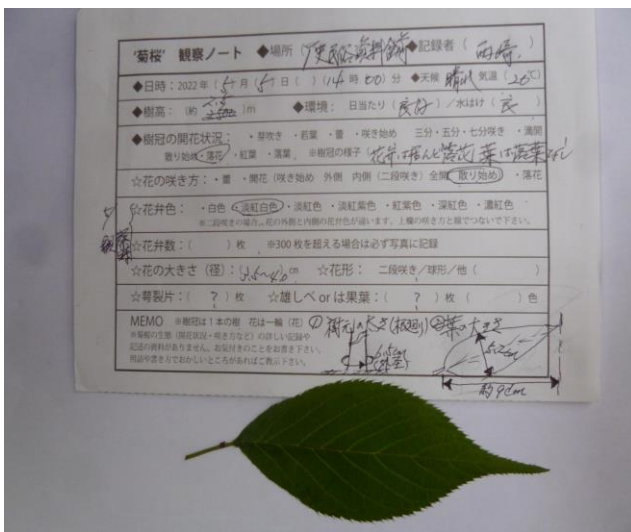 '菊桜' 観察ノート ◆場所(歴史民俗資料館前)◆記録者(西崎)
◆日時：2022年(5)月(5)日( )(14時00)分 ◆天候 晴れ 気温(26℃)
◆樹高：(約 )m ◆環境： 日当たり(良好)／水はけ(良)
◆樹冠の開花状況： ・芽吹き ・若葉 ・蕾 ・咲き始め 三分・五分・七分咲き ・満開
散り始め・落花 ・紅葉 ・落葉 ※樹冠の様子(花弁は殆んど落花 葉は落葉なし
☆花の咲き方：・蕾 ・開花(咲き始め 外側 内側(二段咲き)全開 散り始め ・落花
☆花弁色：・白色 ・淡紅白色 ・淡紅色 ・淡紅紫色 ・紅紫色 ・深紅色 ・濃紅色
※二段咲きの場合、花の外側と内側の花弁色が違います。上欄の咲き方と線でつないで下さい。
☆花弁数：( )枚 ※300枚を超える場合は必ず写真に記録
☆花の大きさ(径)：(3.5〜4.0)cm ☆花形： 二段咲き／球形／他( )
☆萼裂片：( ? )枚 ☆雄しべorは果葉：( ? )枚 ( )色
MEMO ※樹冠は1本の樹 花は一輪(花) ① 樹元の太さ(根廻り) ②葉の大きさ
※菊桜の生態(開花状況・咲き方など)の詳しい記録や
記述の資料がありません。お気付きのことをお書き下さい。
用語や書き方でおかしいところがあればご教示下さい。
5.2cm
約9cm